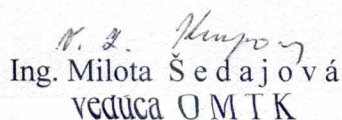 v. z.
Ing. Milota Šedajová
vedúca OMTK